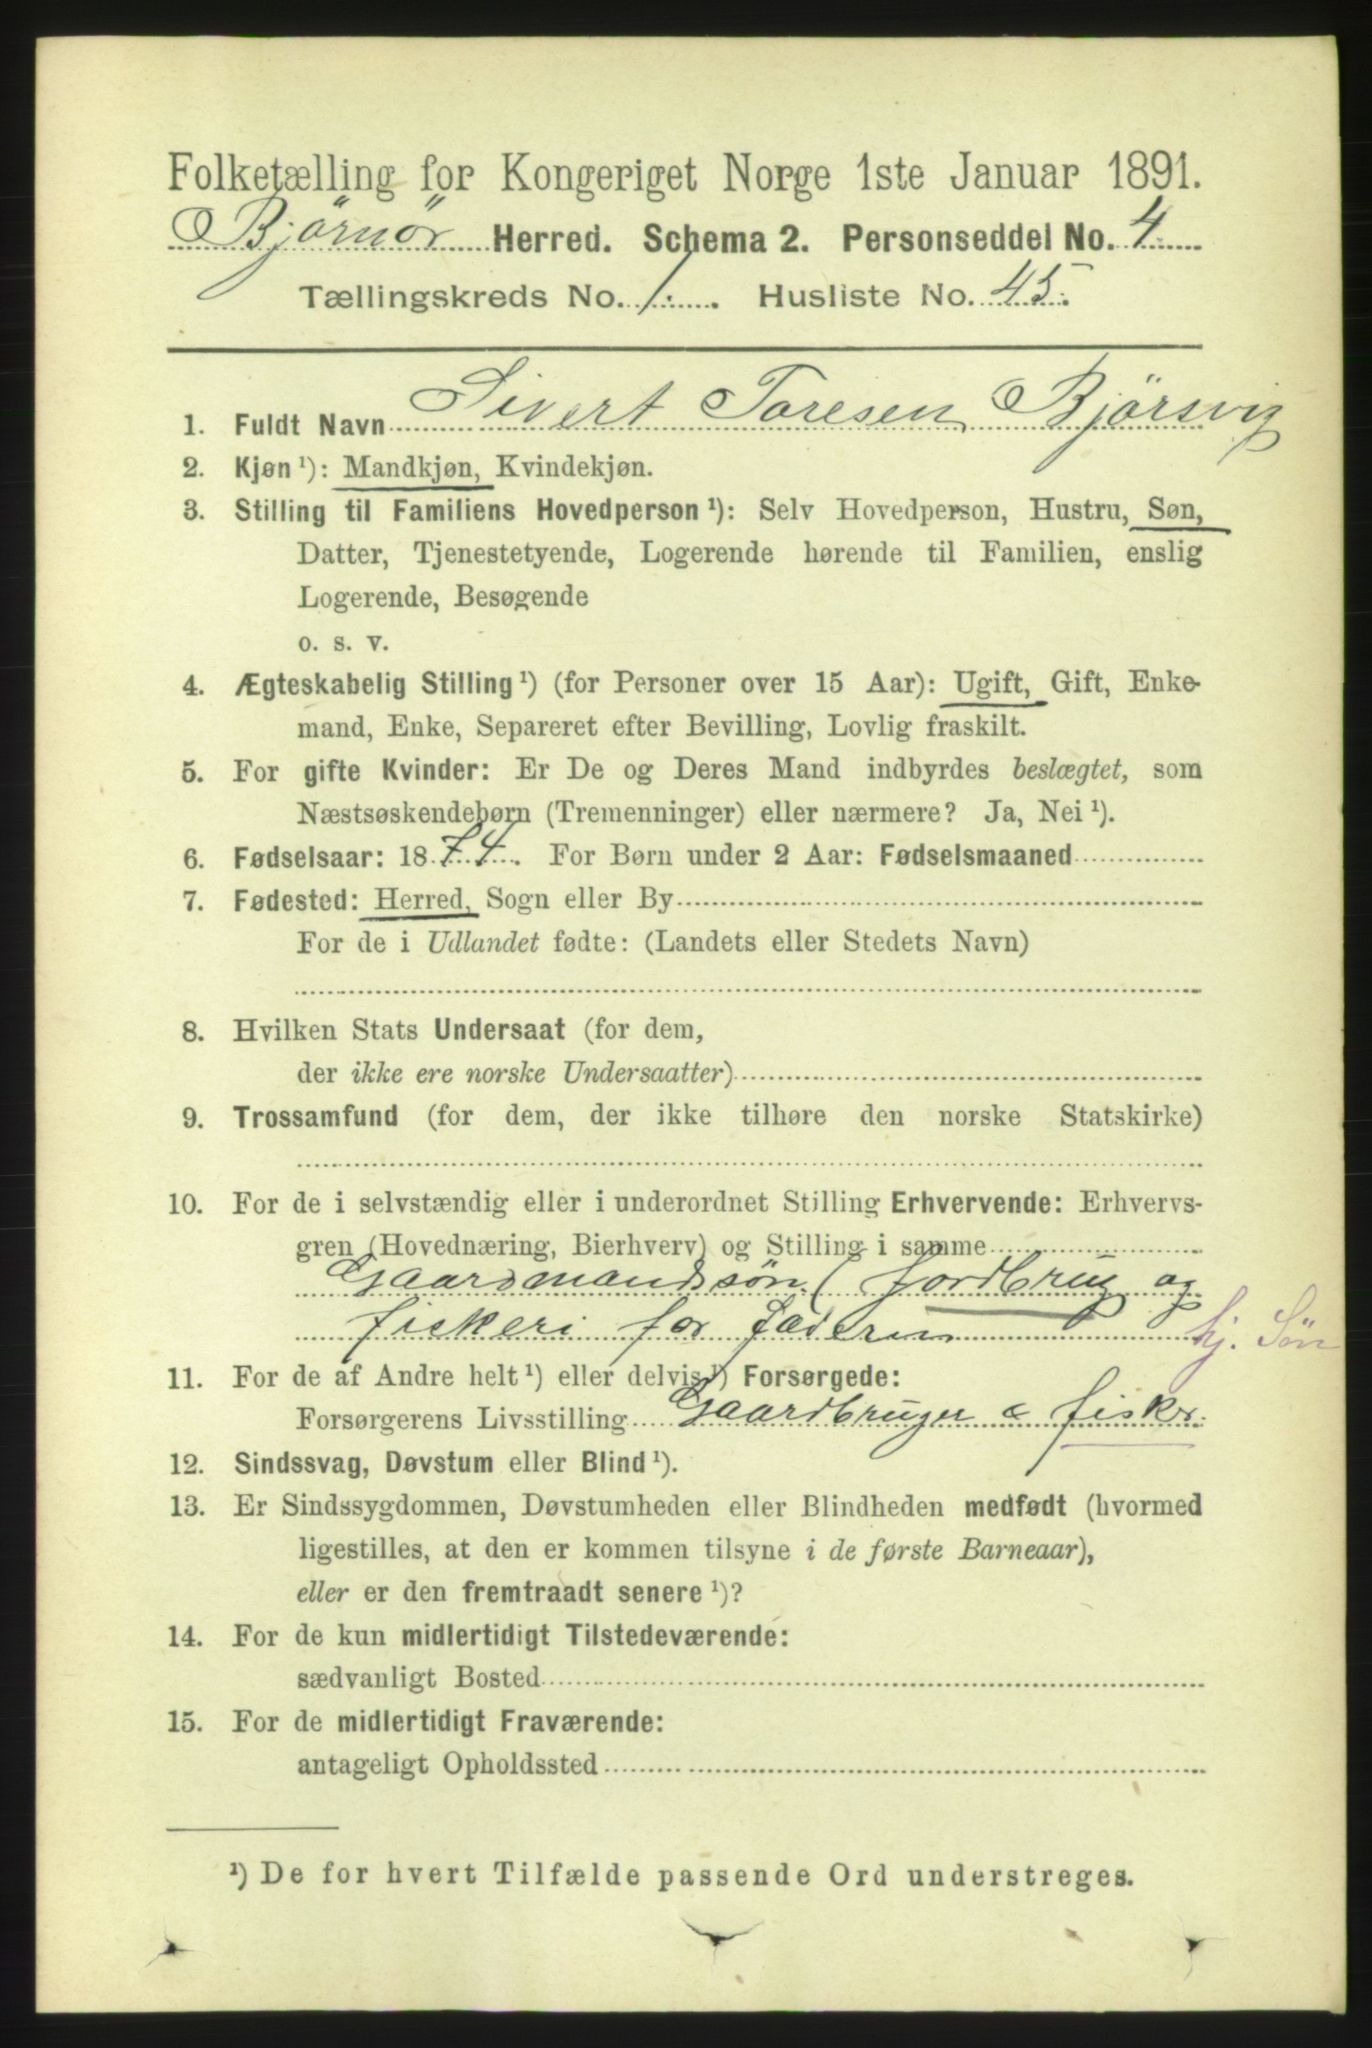 Folketælling for Kongeriget Norge 1ste Januar 1891.
Bjørnør Herred. Schema 2. Personseddel No. 4.
Tællingskreds No. 1. Husliste No. 45.
1. Fuldt Navn Sivert Toresen Bjørsvig
2. Kjøn ¹): Mandkjøn, Kvindekjøn.
3. Stilling til Familiens Hovedperson ¹): Selv Hovedperson, Hustru, Søn,
Datter, Tjenestetyende, Logerende hørende til Familien, enslig
Logerende, Besøgende
o. s. v.
4. Ægteskabelig Stilling ¹) (for Personer over 15 Aar): Ugift, Gift, Enke-
mand, Enke, Separeret efter Bevilling, Lovlig fraskilt.
5. For gifte Kvinder: Er De og Deres Mand indbyrdes beslægtet, som
Næstsøskendebørn (Tremenninger) eller nærmere? Ja, Nei ¹).
6. Fødselsaar: 1874. For Børn under 2 Aar: Fødselsmaaned
7. Fødested: Herred, Sogn eller By
For de i Udlandet fødte: (Landets eller Stedets Navn)
8. Hvilken Stats Undersaat (for dem,
der ikke ere norske Undersaatter)
9. Trossamfund (for dem, der ikke tilhøre den norske Statskirke)
10. For de i selvstændig eller i underordnet Stilling Erhvervende: Erhvervs-
gren (Hovednæring, Bierhverv) og Stilling i samme
Gaardmandssøn (Jordbrug og
fiskeri for Faderen hj. Søn
11. For de af Andre helt ¹) eller delvis ¹) Forsørgede:
Forsørgerens Livsstilling Gaardbruger & fisker
12. Sindssvag, Døvstum eller Blind ¹).
13. Er Sindssygdommen, Døvstumheden eller Blindheden medfødt (hvormed
ligestilles, at den er kommen tilsyne i de første Barneaar),
eller er den fremtraadt senere ¹)?
14. For de kun midlertidigt Tilstedeværende:
sædvanligt Bosted
15. For de midlertidigt Fraværende:
antageligt Opholdssted
¹) De for hvert Tilfælde passende Ord understreges.